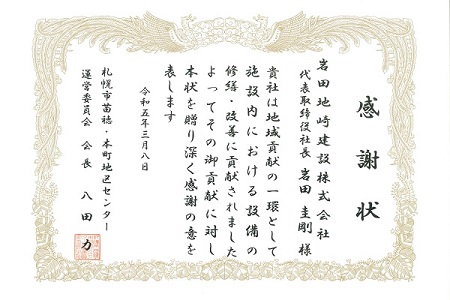 感謝状
岩田地崎建設株式会社
代表取締役社長 岩田 圭剛 様
貴社は地域貢献の一環として
施設内における設備の
修繕・改善に貢献されました
よってその御貢献に対し
本状を贈り深く感謝の意を
表します
令和五年三月八日
札幌市苗穂・本町地区センター
運営委員会 会長 八田 力